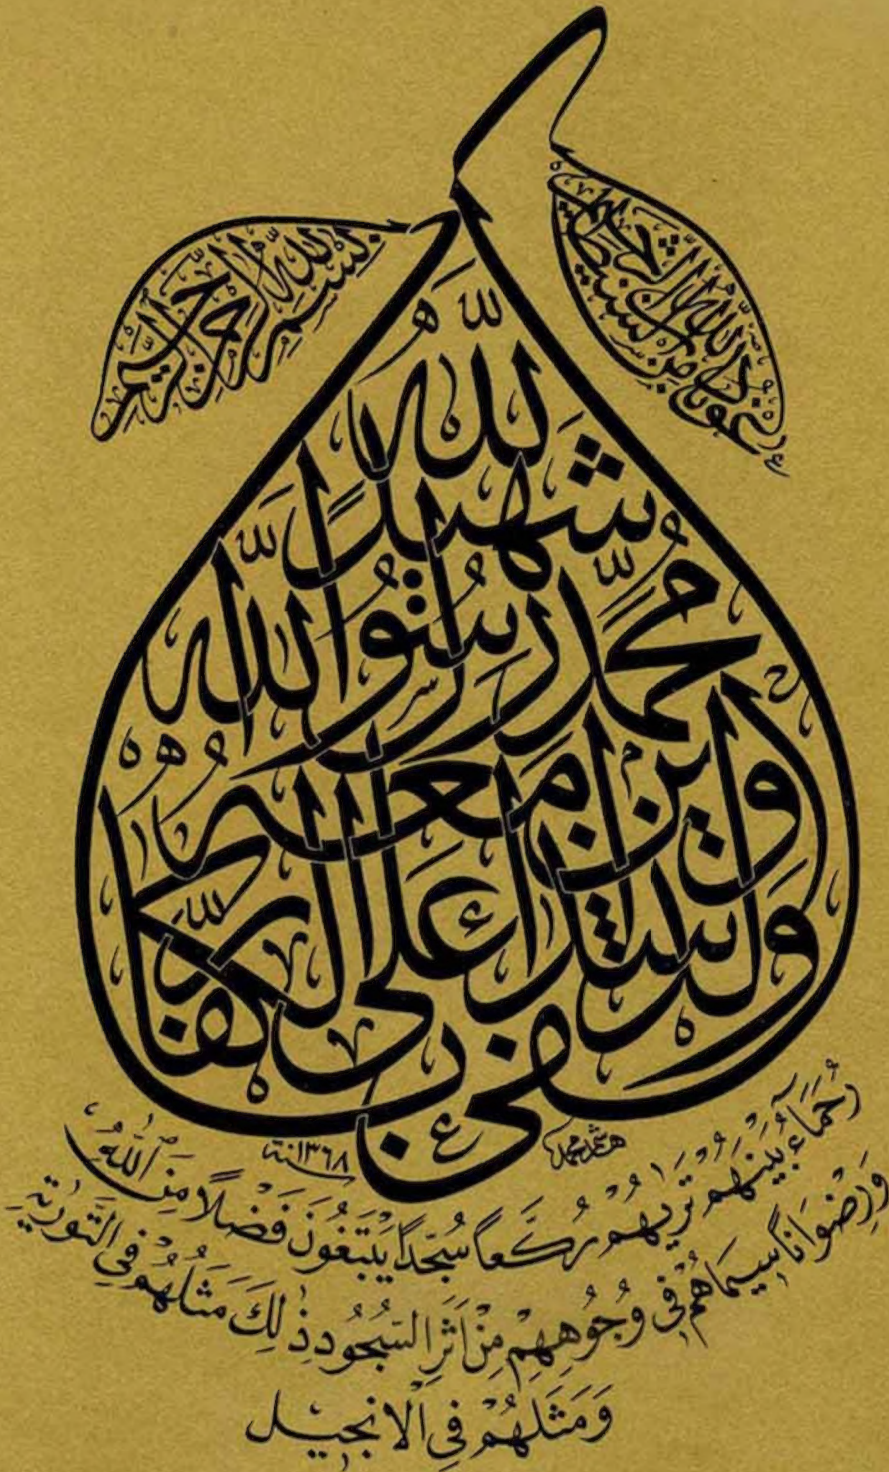 أعوذ بالله من الشيطان الرجيم
بسم الله الرحمن الرحيم
وكفى بالله شهيدًا محمد رسول الله والذين معه أشداء على الكفار
هاشم محمد
سنة ١٣٦٨
رُحَمَاءُ بَيْنَهُمْ تَرٰيهُمْ رُكَّعاً سُجَّدًا يَبْتَغُونَ فَضْلًا مِنَ اللّٰهِ
وَرِضْوَاناً سِيمَاهُمْ فِي وُجُوهِهِمْ مِنْ اَثَرِ السُّجُودِ ذٰلِكَ مَثَلُهُمْ فِي التَّوْرٰيةِ
وَمَثَلُهُمْ فِي الْاِنْجِيلِ